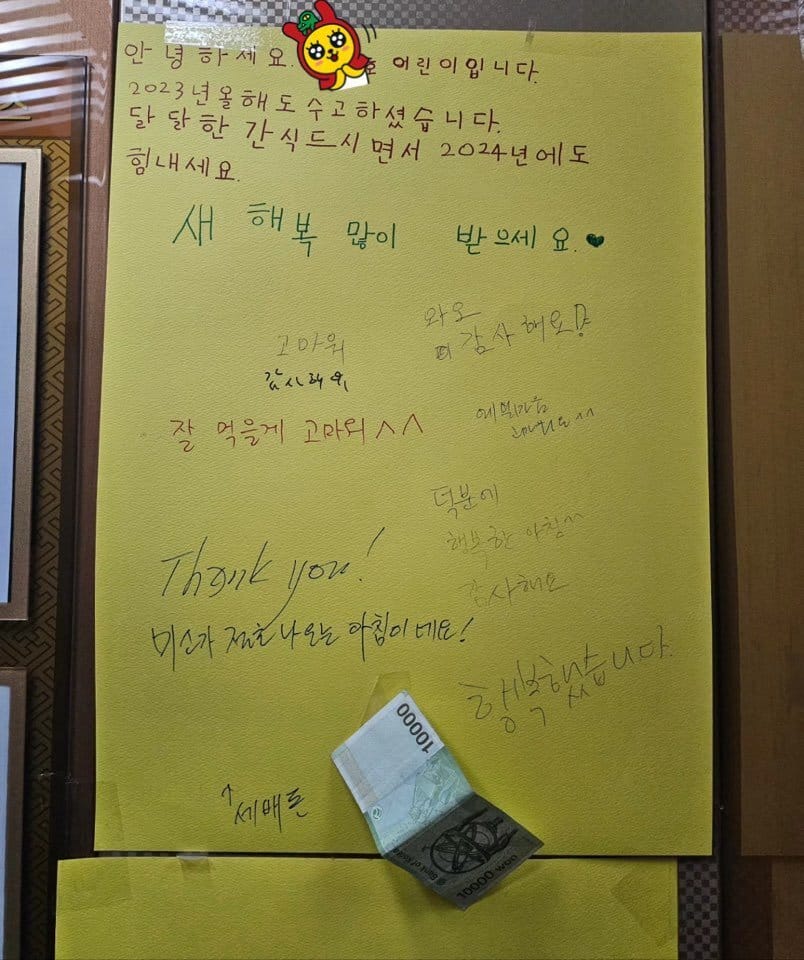 안녕하세요. 호 어린이입니다.
2023년 올해도 수고하셨습니다.
달달한 간식드시면서 2024년에도
힘내세요.
새해 복 많이 받으세요.♥
고마워
감사해요
와우
감사해요!
잘 먹을게 고마워^^
예쁜마음
^^
덕분에
행복한 아침^^
감사해요
Thank you!
미소가 절로 나오는 아침이네요!
행복했습니다.
↑
세배돈
10000
Bank of Korea
10000 won